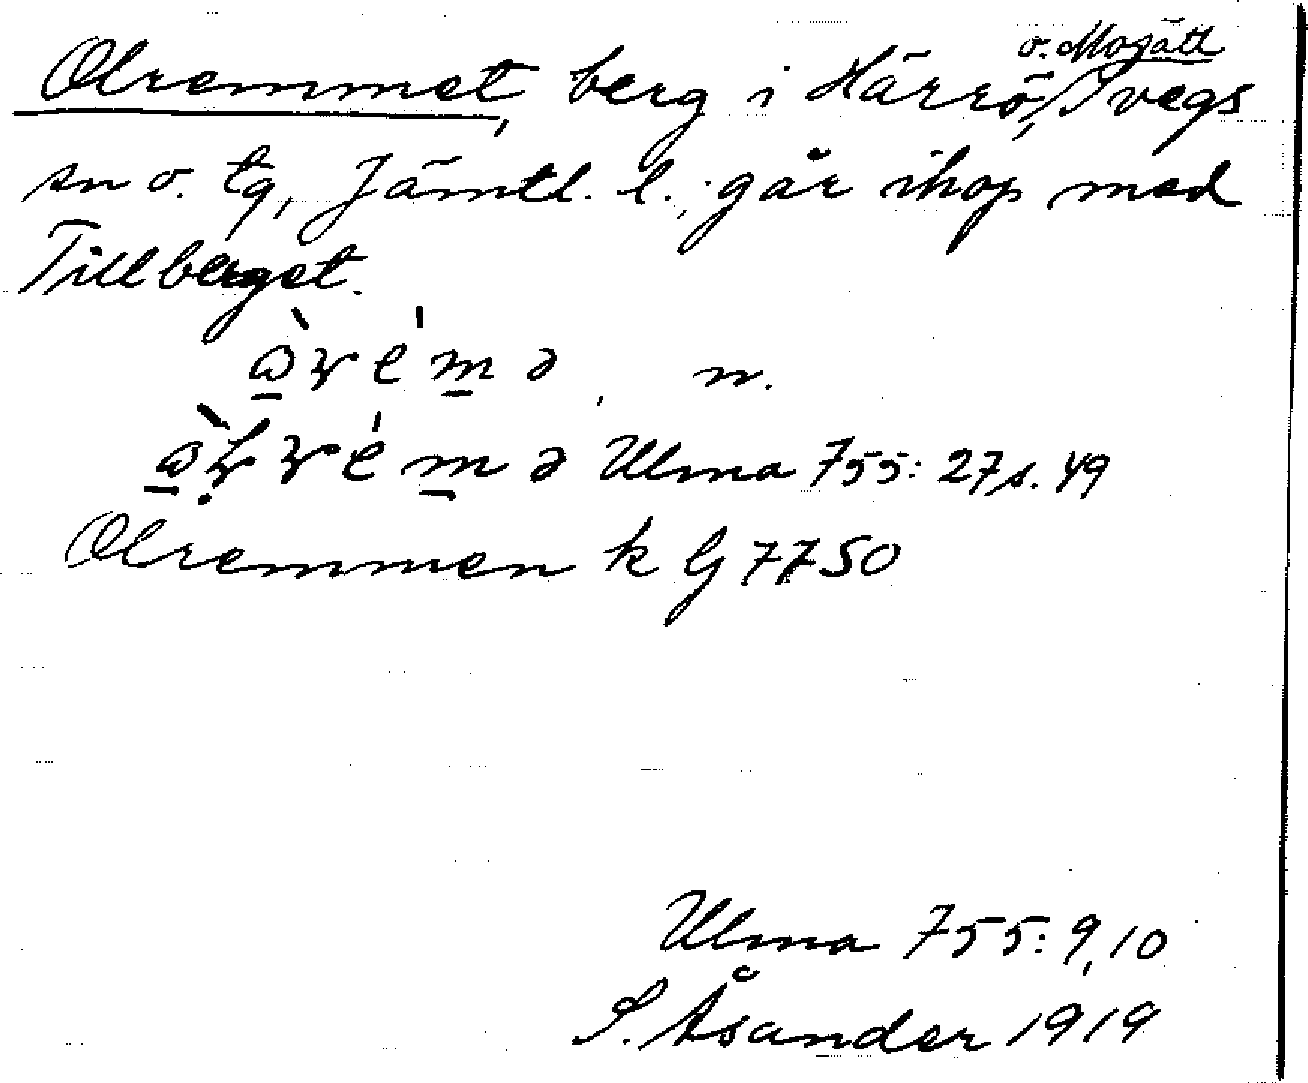 Olremmet, berg i Härrö, o. Mosätt Svegs
sn o. tg, Jämtl. l., går ihop med
Tillberget.
n.
Ulma 755: 27 s. 49
Olremmen k G 7750
Ulma 755: 9,10
S. Åsander 1919